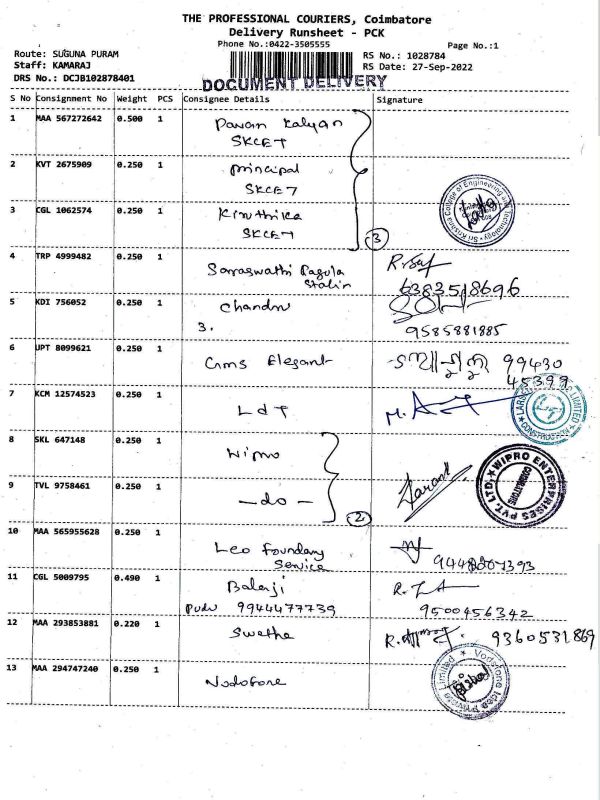 THE PROFESSIONAL COURIERS, Coimbatore
Delivery Runsheet - PCK
Phone No.:0422-3505555
Page No.:1
Route: SUGUNA PURAM
RS No.: 1028784
Staff: KAMARAJ
RS Date: 27-Sep-2022
DRS No.: DCJB102878401
DOCUMENT DELIVERY
S No Consignment No Weight PCS Consignee Details Signature
1 MAA 567272642 0.500 1 Pavan Kalyan
SKCET
2 KVT 2675909 0.250 1 Principal
SKCET
3 CGL 1062574 0.250 1 Kiruthika
SKCET
3
Sri Krishna College of Engineering and Technology
4 TRP 4999482 0.250 1 Saraswathi Ragula
Stalin
6383518696
5 KDI 756052 0.250 1 Chandru
3.
9585881885
6 UPT 8099621 0.250 1 Cims Elegant 99430
45399
7 KCM 12574523 0.250 1 L&T
8 SKL 647148 0.250 1 Wipro
9 TVL 9758461 0.250 1 -do-
2
WIPRO ENTERPRISES PVT. LTD,
COIMBATORE
10 MAA 565955628 0.250 1 Leo Foundary
Service
11 CGL 5009795 0.490 1 Balaji
Pudu 9944477739
9500456342
12 MAA 293853881 0.220 1 Swetha 9360531869
13 MAA 294747240 0.250 1 Vodofone
Vodafone Idea
Limited